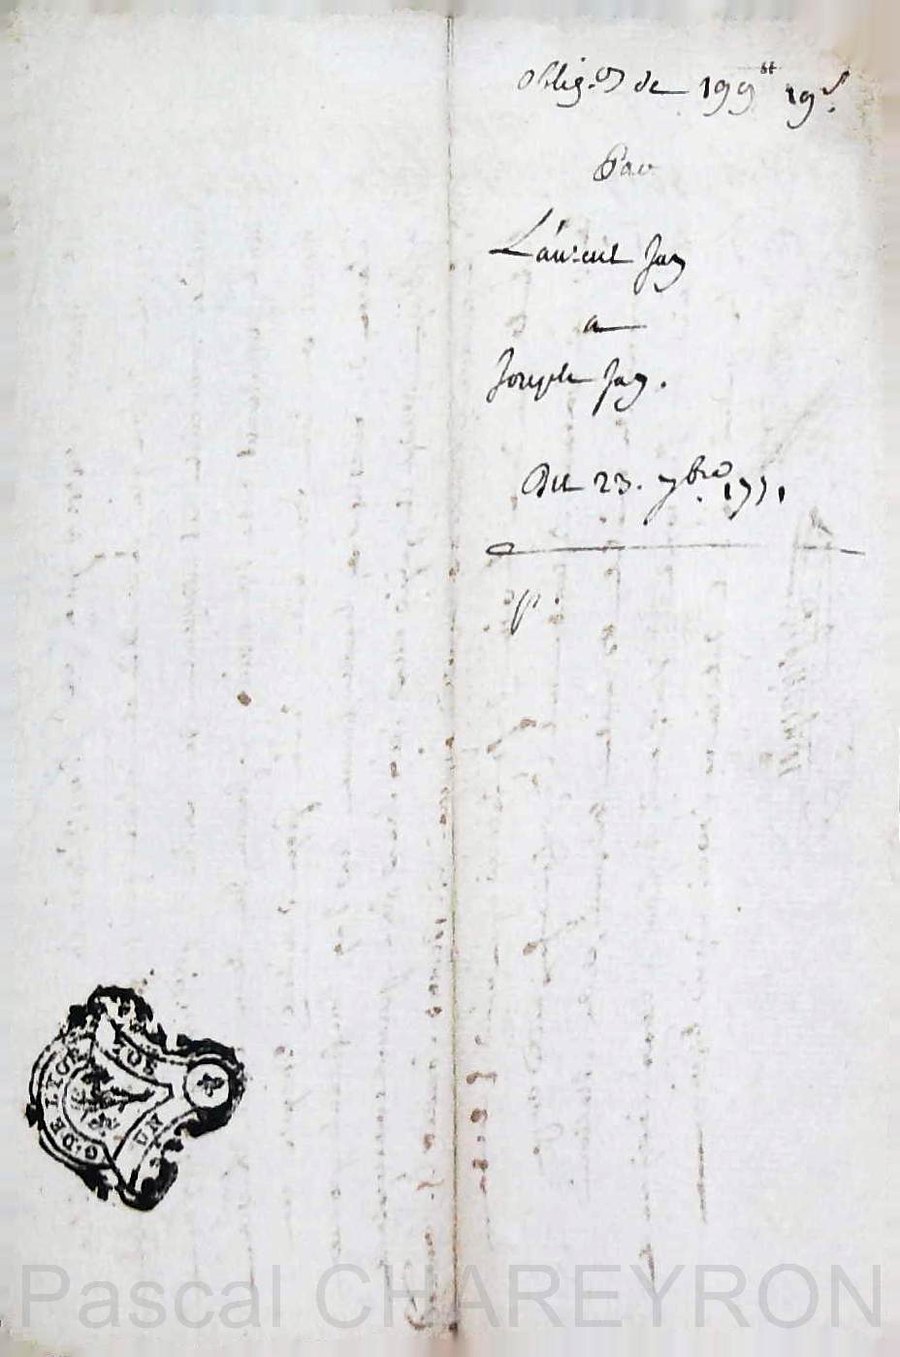 oblig.on de 199tt 19s.
Par
Laurent Jay
a
Joseph Jay.
Du 23. 7bre 1771
G. DE LYON
UN SOL
Pascal CHAREYRON